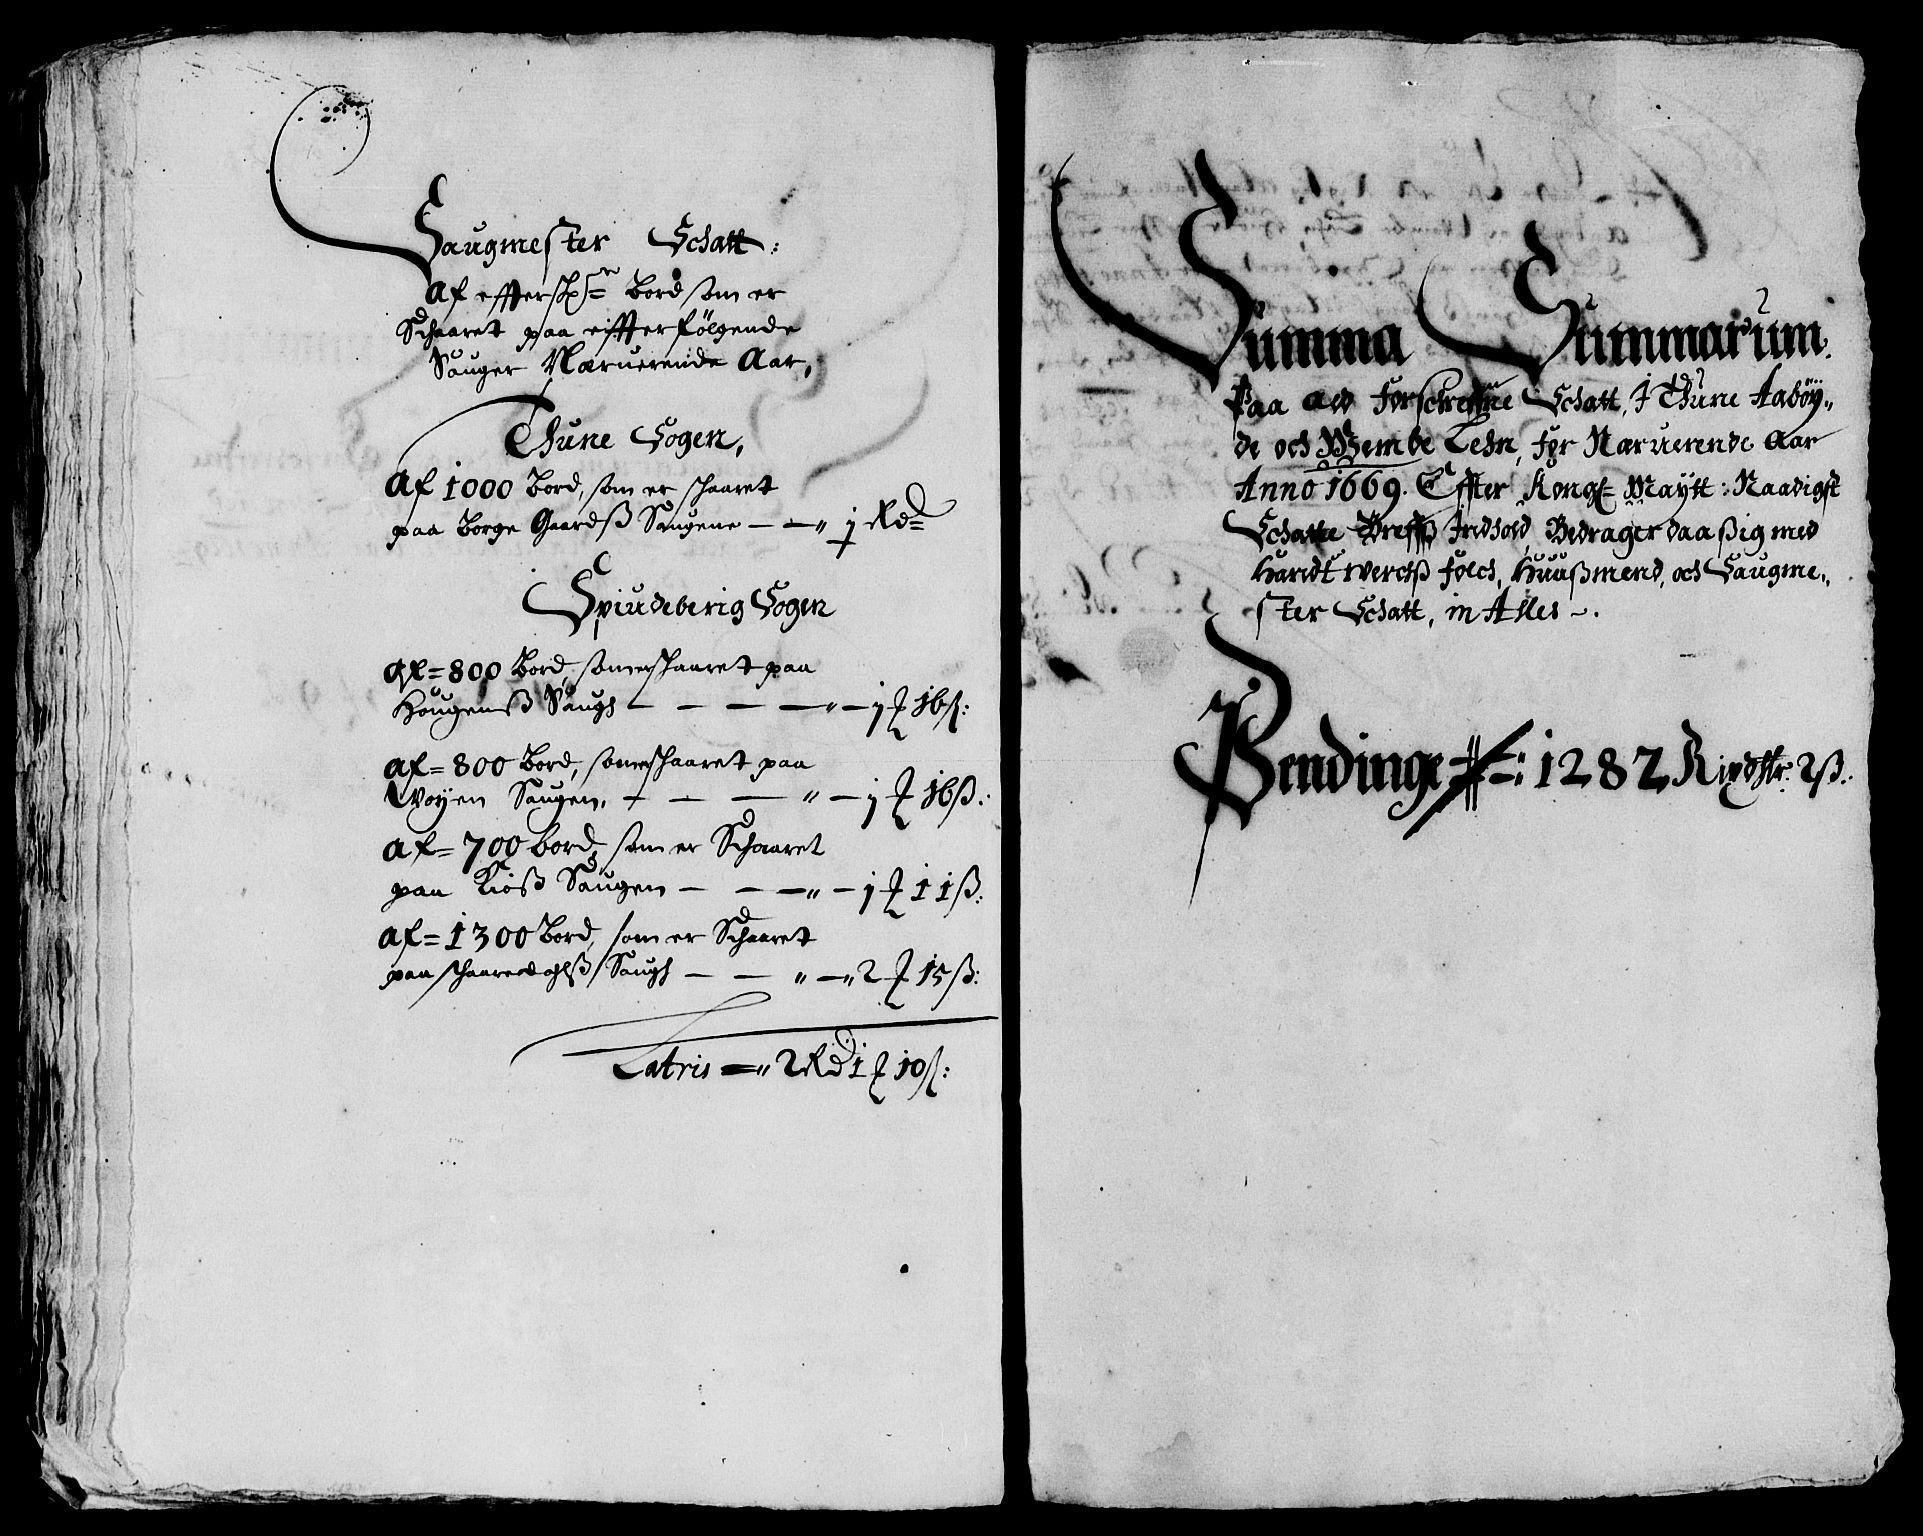 Saugmester Schatt:
af effterschr= Bord som er
Schaaret paa eiffterfölgende
Sauger Nærverende Aar,
Thune Sogen,
Af 1000 Bord, som er schaaret
paa Borge Gaardß Saugene — — " 1 Rd=
Spiudeberig Sogen
af= 800 Bord, som er schaaret paa
Hougenß Saugh — — — — " — 1 ƶ 16 ß:
af= 800 Bord, som er schaaret paa
Woyen Saugen, — — — " — 1 ƶ 16 ß:
af= 700 Bord, som er Schaaret
paa Kioß Saugen — — — " — 1 ƶ 11 ß:
af= 1300 Bord, som er Schaaret
paa schaaredahlß Saugh — — " — " 2 ƶ 15 ß:
Latris — " 2 Rd 1 ƶ 10 ß:
Summa Summarum.
Paa all Forschrefne Schatt, J Thune Aaböy,,
de och Wembe Lehn, for Nærverende Aar
Anno 1669. Effter Kongl= Maytt: Naadigst
Schatte Breffß Indhold, Bedrager daa ßig med
Handtwerchß Folch, Huußmend, och Saugme,,
ster Schatt, in Alles —.
Pendinge — 1282 Rixdlr: 2 ß: